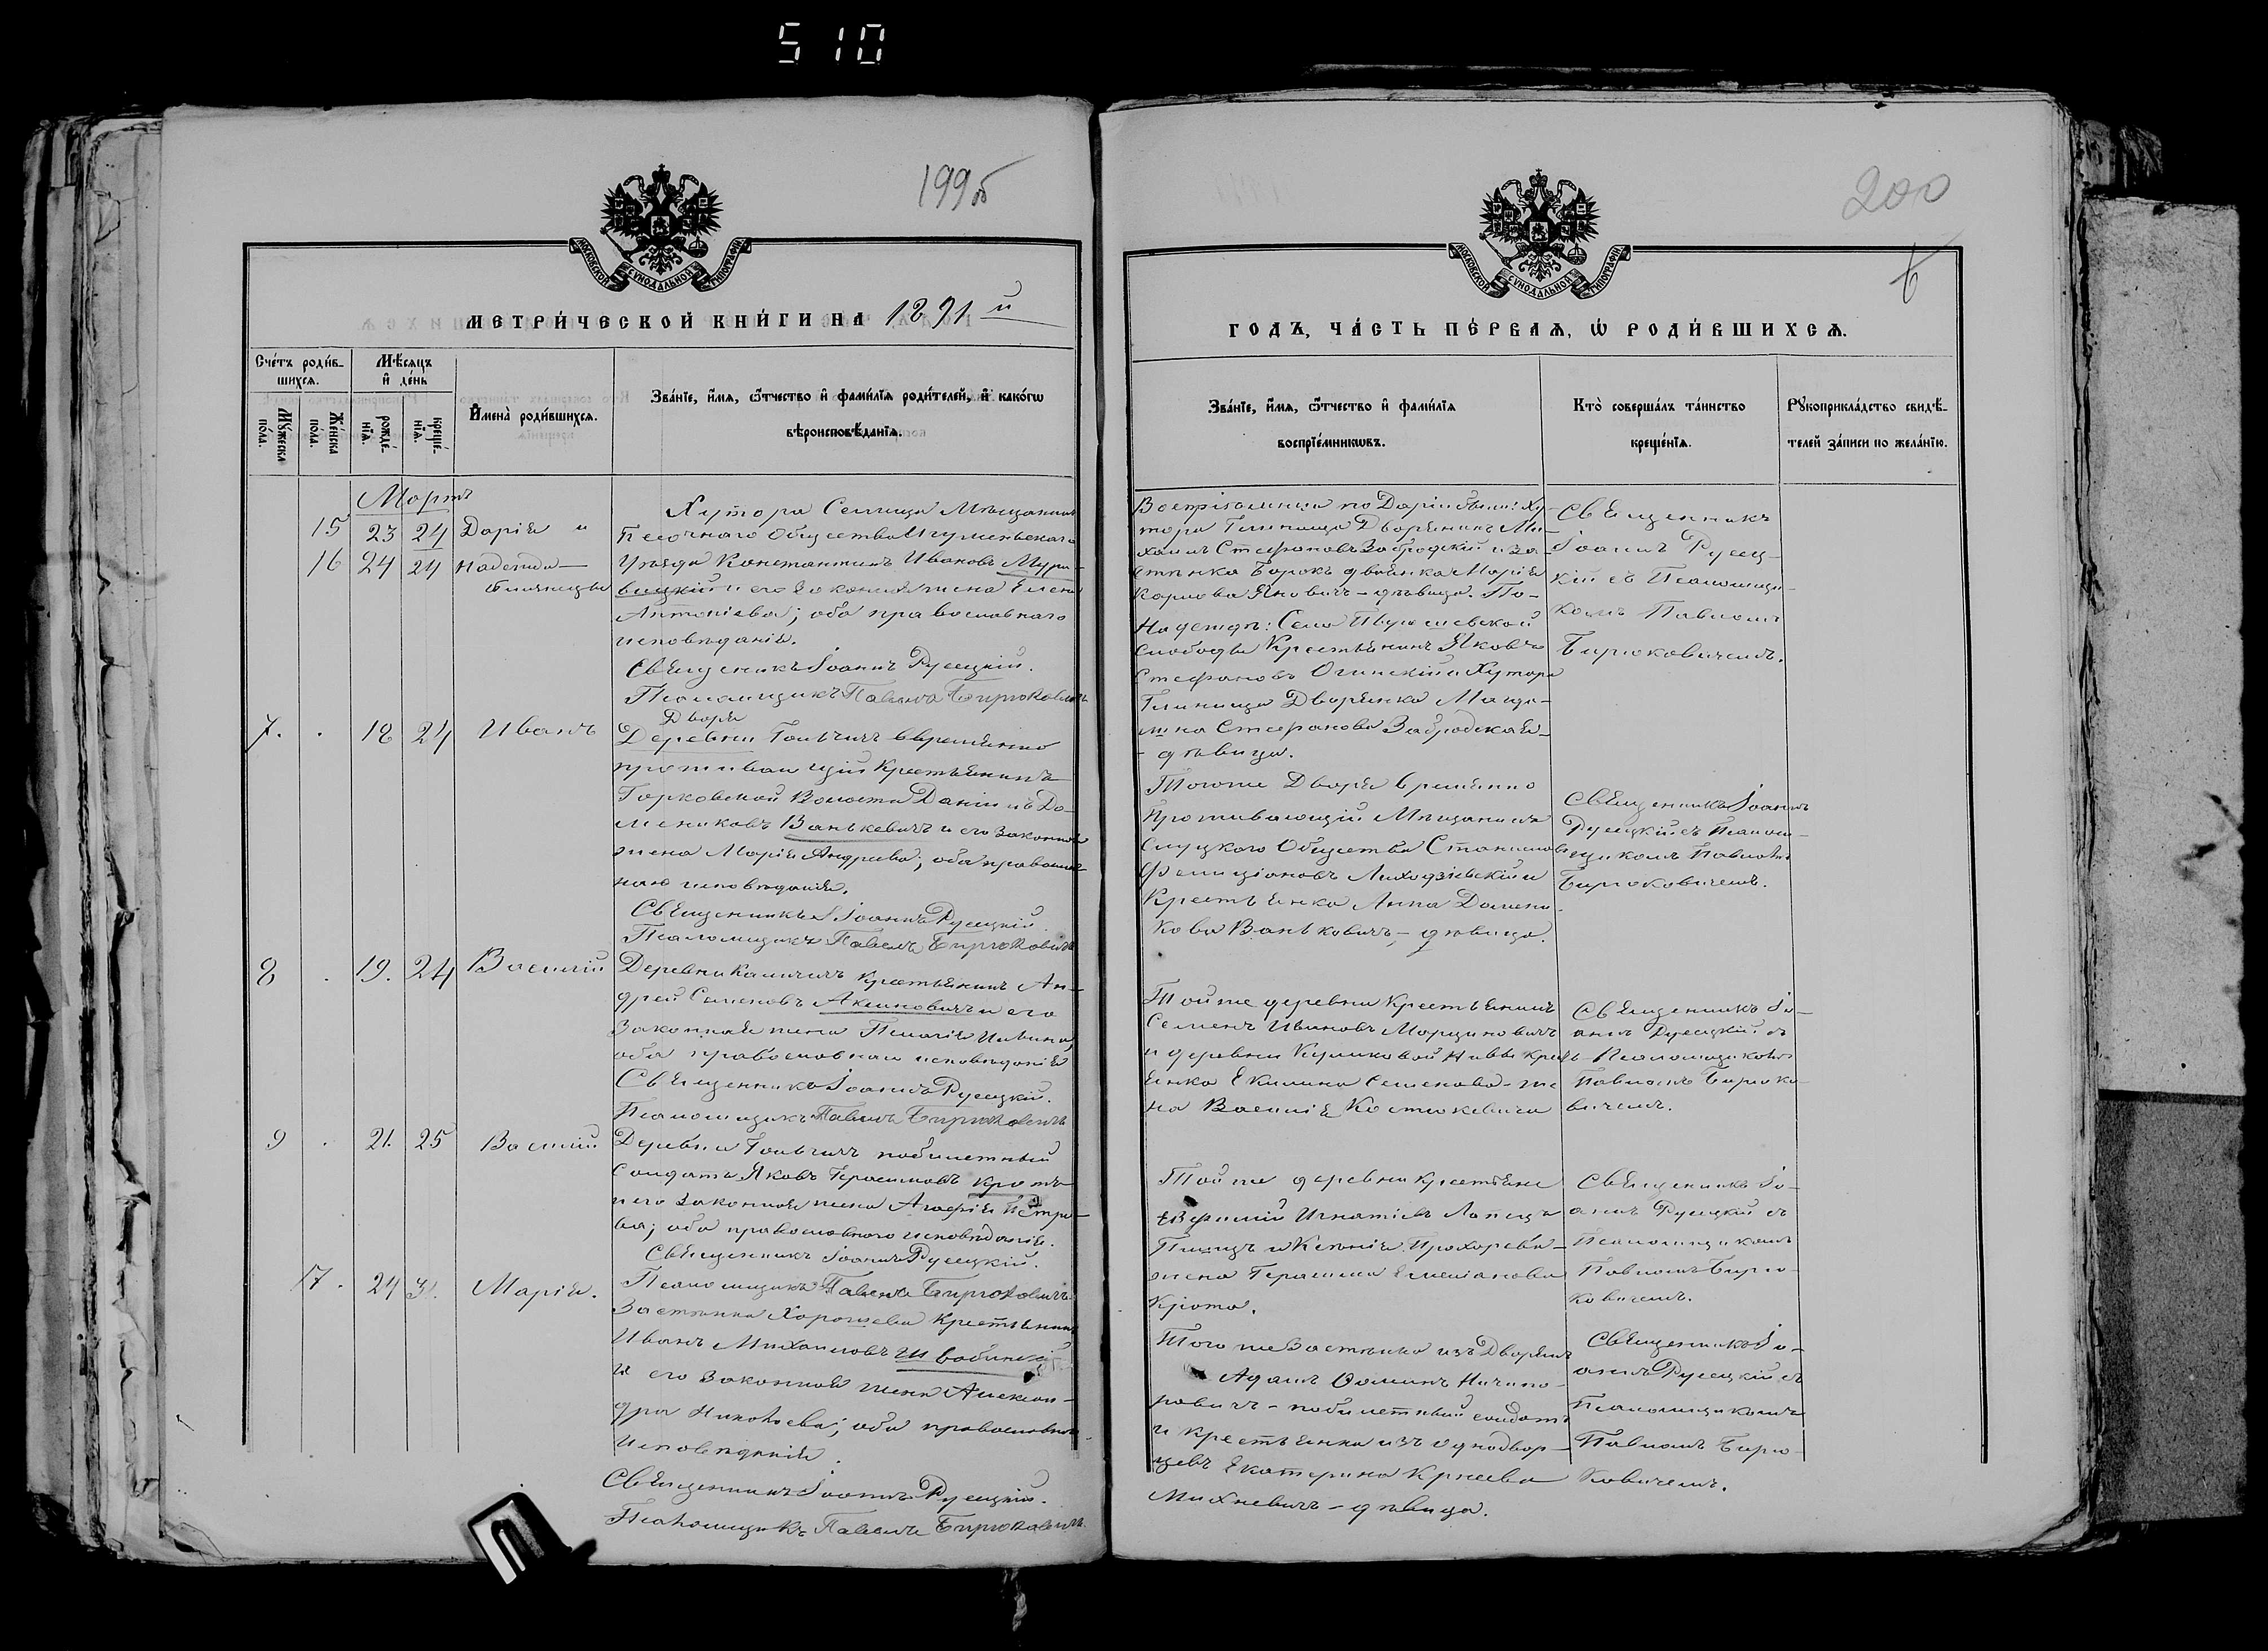 5 10
199 об
МОСКОВСКОЙ СѴНОДАЛЬНОЙ ТИПОГРАФІИ
МЕТРИ́ЧЕСКОЙ КНИ́ГИ НА 1891 й
Сче́тъ роди́в-
шихсѧ.
Мѣ́сѧцъ
и҆ де́нь
Мꙋ́жеска
по́ла.
Же́нска
по́ла.
рожде́-
нїѧ.
креще́-
нїѧ.
И҆мена̀ роди́вшихсѧ.
Зва́нїе, и҆́мѧ, ѻ҆́тчество и҆ фами́лїѧ роди́телей, и҆ како́гѡ
вѣроисповѣ́данїѧ.
Мартъ
15 23 24 Дарія и
16 24 24 Надежда
близнецы
Хутора Селища Мѣщанинъ
Песочнаго Общества Игуменскаго
Уѣзда Константинъ Ивановъ Мура-
вицкій и его законная жена Елена
Антоніева; оба православнаго
исповѣданія.
Священникъ Іоаннъ Русецкій.
Псаломщикъ Павелъ Бирюковичъ
7. . 18 24 Иванъ
Двора
Деревни Голѣчичъ временно
проживающій Крестьянинъ
Горковской Волости Даніилъ До-
мениковъ Ванькевичъ и его законная
жена Марія Андреева; оба православ-
наго исповѣданія.
Священникъ Іоаннъ Русецкій.
Псаломщикъ Павелъ Бирюковичъ
8 . 19. 24 Василій
Деревни Каличичъ Крестьянинъ Ан-
дрей Семеновъ Акиновичъ и его
законная жена Пелагія Ильина,
оба православнаго исповѣданія
Священникъ Іоаннъ Русецкій.
Псаломщикъ Павелъ Бирюковичъ
9 . 21. 25 Василій
Деревни Голѣчичъ побилетный
Солдатъ Яковъ Герасимовъ Кротъ
и его законная жена Агафія Петро-
ва; оба православнаго исповѣданія.
Священникъ Іоаннъ Русецкій.
Псаломщикъ Павелъ Бирюковичъ
17. 24 31. Марія.
Застѣнка Хорошева Крестьянинъ
Иванъ Михаиловъ
и его законная жена Алексан-
дра Николаева; оба православнаго
исповѣданія.
Священникъ Іоаннъ Русецкій.
Псаломщикъ Павелъ Бирюковичъ
200
МОСКОВСКОЙ СѴНОДАЛЬНОЙ ТИПОГРАФІИ
ГОДЪ, ЧА́СТЬ ПЕ́РВАѦ, Ѡ҆ РОДИ́ВШИХСѦ.
Зва́нїе, и҆́мѧ, ѻ҆́тчество и҆ фами́лїѧ
воспрїе́мникѡвъ.
Кто̀ соверша́лъ та́инство
креще́нїѧ.
Рꙋкоприкла́дство свидѣ́-
телей за́писи по жела́нїю.
Воспріемники по Даріи были: Ху-
тора Глинища Дворянинъ Ми-
хаилъ Стефановъ Забродскій и за-
стѣнка Борокъ дворянка Марія
Карлова Яновичъ - дѣвица. По-
Надеждѣ: Села
Слободы Крестьянинъ Яковъ
Стефановъ Огинскій и Хутора
Глинища Дворянка Магда-
лина Стефанова Забродская -
- дѣвица.
Священникъ
Іоаннъ Русец-
кій съ Псаломщи-
комъ Павломъ
Бирюковичемъ.
Тогоже Двора временно
проживающій Мѣщанинъ
Слуцкого Общества Станиславъ
Фелиціановъ Лиходзіевскій и
Крестьянка Анна Домени-
кова Ванькевичъ - дѣвица.
Священникъ Іоаннъ
Русецкій съ Псалом-
щикомъ Павломъ
Бирюковичемъ.
Той же деревни Крестьянинъ
Семенъ Ивановъ Марциновичъ
и деревни Куликовой Нивы Кресть-
янка Екилина Семенова - же
на Василія Костюкевича
Священникъ Іо-
аннъ Русецкій съ
Псаломщикомъ
Павломъ Бирюко-
вичемъ.
Той же деревни Крестьяне
Игнатіевъ Лапецъ
и Ксенія Прохорова -
жена Герасима Емеліанова
Крота.
Священникъ Іо-
аннъ Русецкій съ
Псаломщикомъ
Павломъ Бирю-
ковичемъ.
Того же Застѣнка изъ Дворянъ
Адамъ Ѳоминъ Ничипо-
ровичъ - побилетный солдатъ
и крестьянка изъ однодвор-
цевъ Екатерина
Михневичъ - дѣвица.
Священникъ Іо-
аннъ Русецкій съ
Псаломщикомъ
Павломъ Бирю-
ковичемъ.